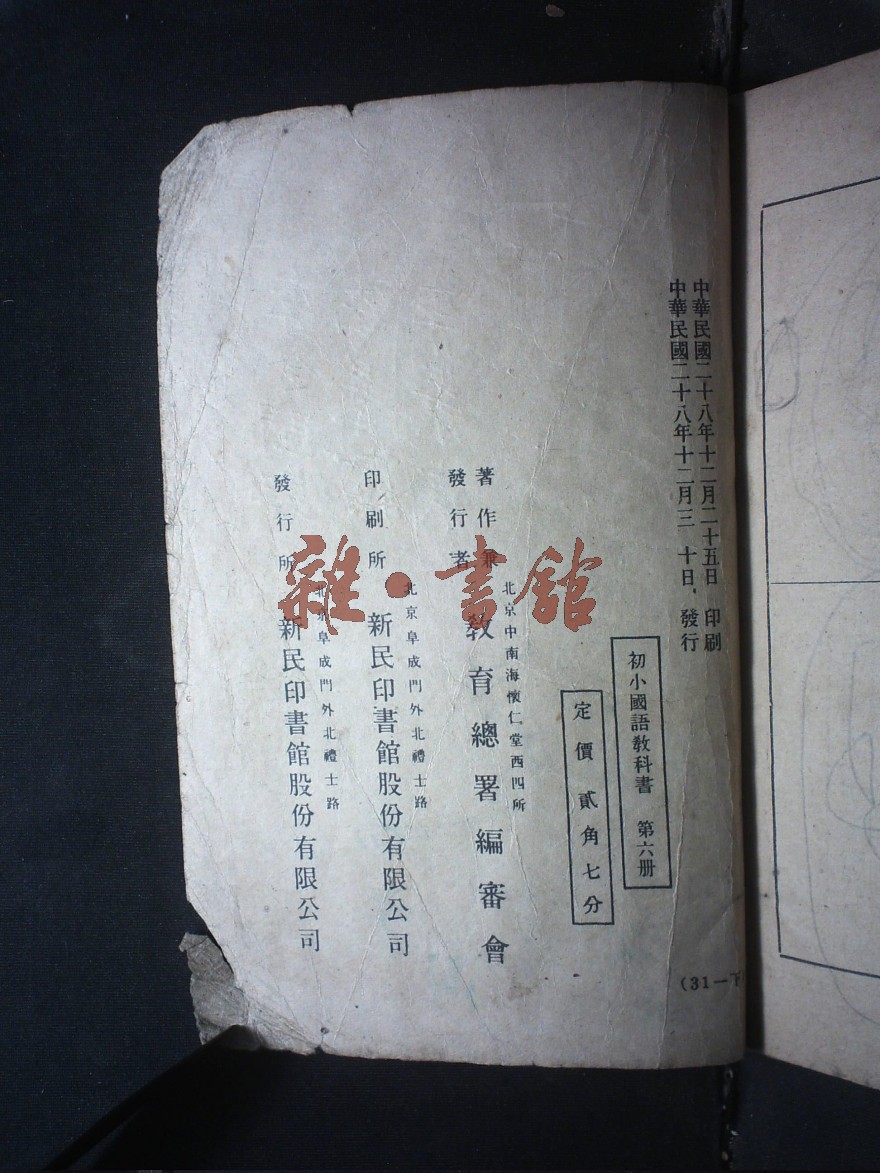 中華民國二十八年十二月二十五日 印刷
中華民國二十八年十二月三 十日 發行
初小國語教科書 第六册
定價貳角七分
著作兼
發行者
北京中南海懷仁堂西四所
教育總署編審會
印刷所
北京阜成門外北禮士路
新民印書館股份有限公司
發行所
北京阜成門外北禮士路
新民印書館股份有限公司
(31—下
雜·書舘